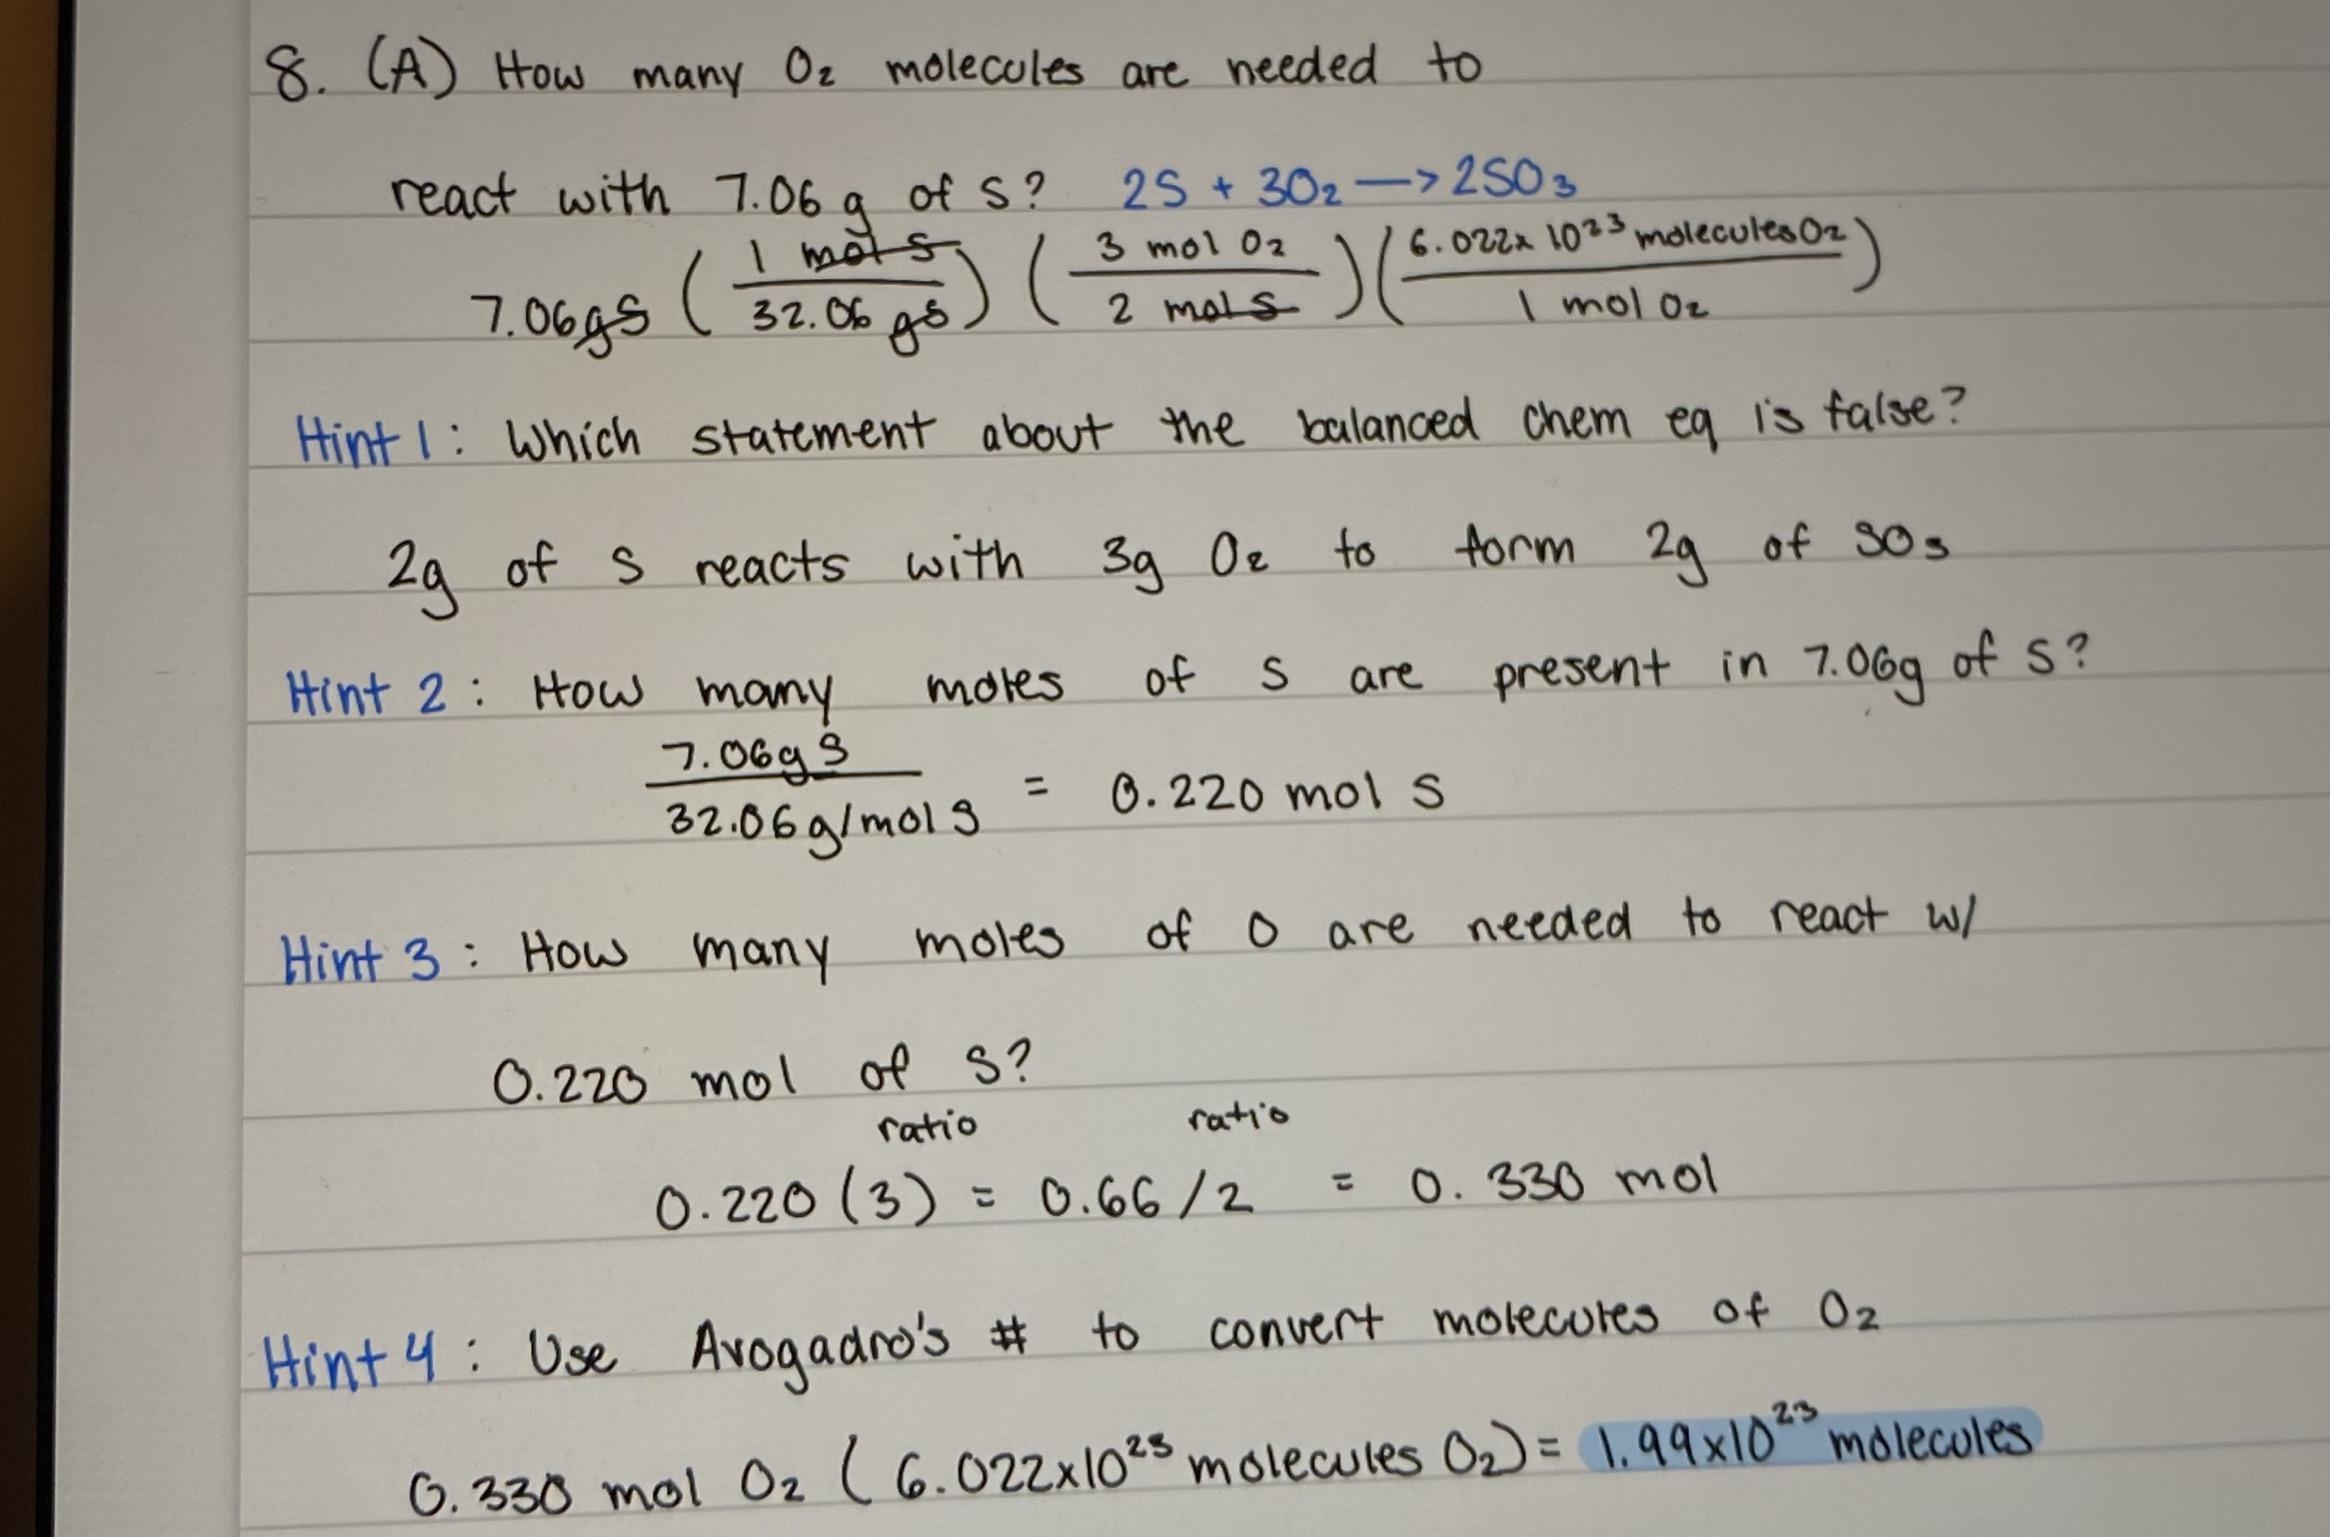 8. (A) How many O₂ molecules are needed to
react with 7.06 g of S? 2S + 3O₂ —> 2SO₃
7.06gS (1 mol S / 32.06 gS) (3 mol O₂ / 2 mol S) (6.022x 10²³ molecules O₂ / 1 mol O₂)
Hint 1: Which statement about the balanced chem eq is false?
2g of S reacts with 3g O₂ to form 2g of SO₃
Hint 2: How many moles of S are present in 7.06g of S?
7.06g S / 32.06 g/mol S = 0.220 mol S
Hint 3: How many moles of O are needed to react w/
0.220 mol of S?
ratio ratio
0.220 (3) = 0.66 / 2 = 0.330 mol
Hint 4: Use Avogadro's # to convert molecules of O₂
0.330 mol O₂ (6.022x10²³ molecules O₂) = 1.99x10²³ molecules